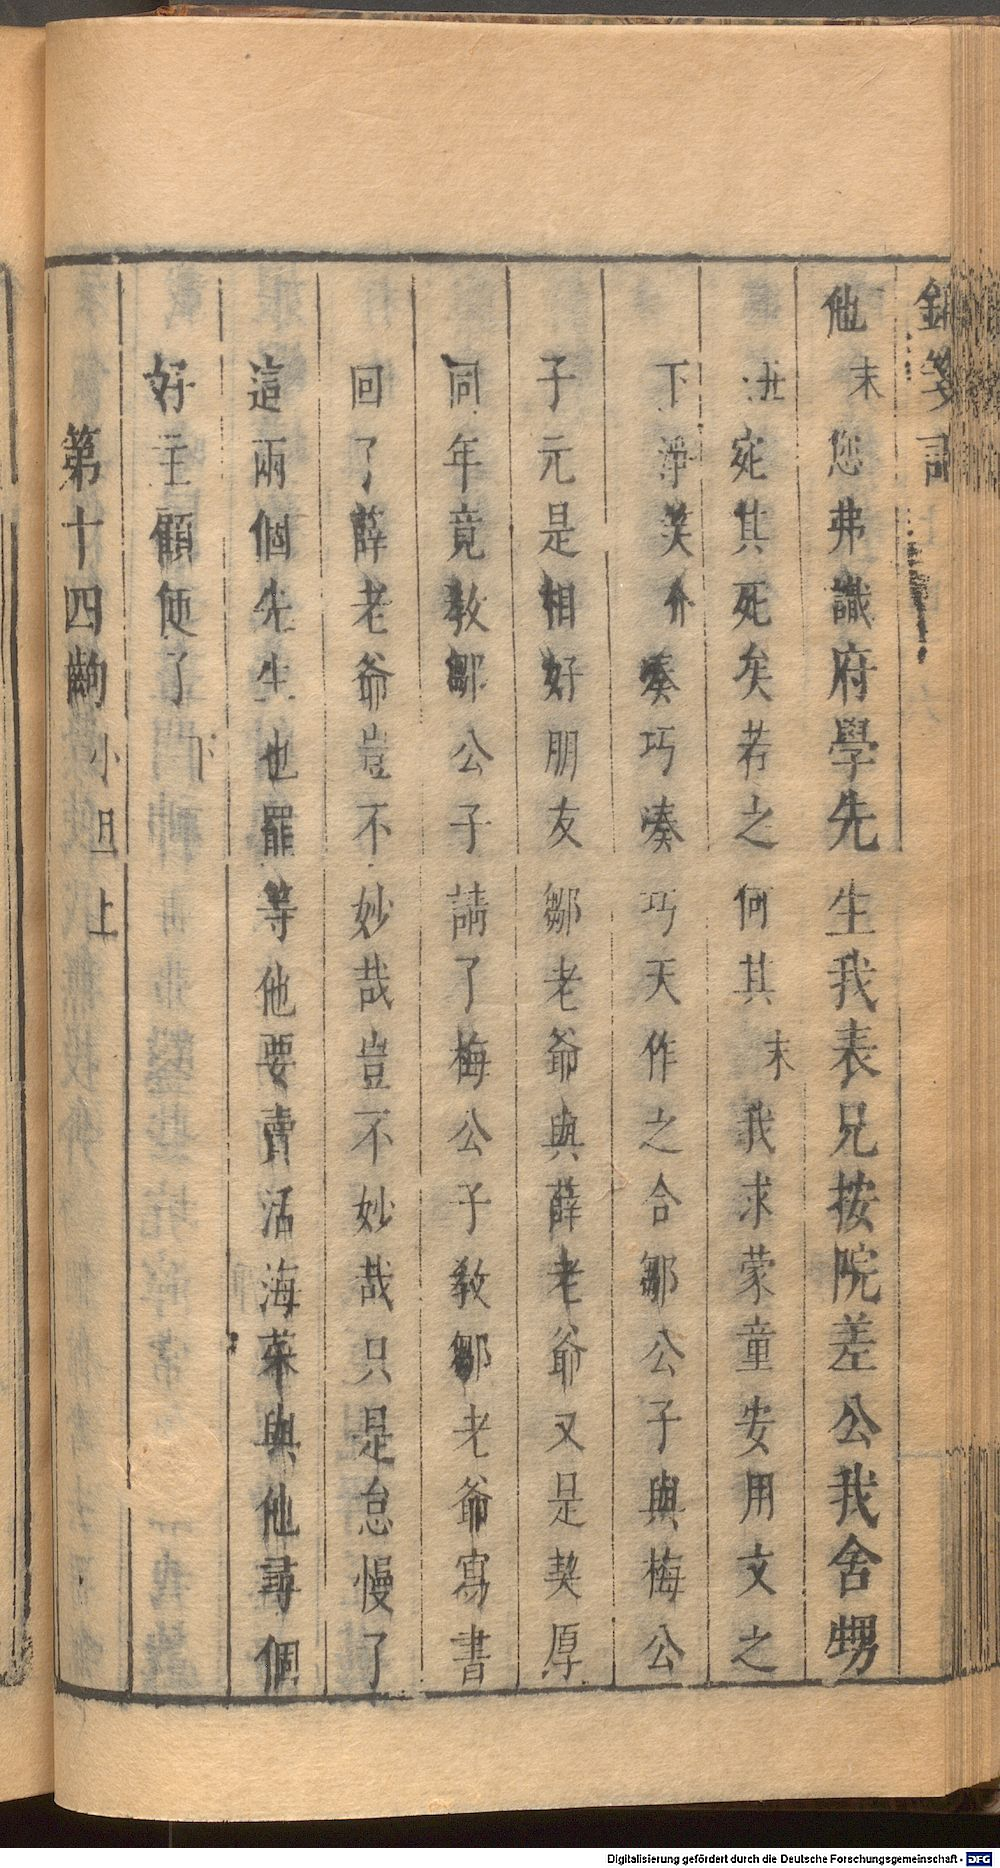 釵箋記
他末您弗識府學先生我表兄按院差公我舍甥
丑宛其死矣若之何其末我求蒙童安用文之
下淨笑介湊巧湊巧天作之合鄒公子與梅公
子元是相好朋友鄒老爺與薛老爺又是契厚
同年竟教鄒公子請了梅公子教鄒老爺寫書
回了薛老爺豈不妙哉豈不妙哉只是怠慢了
這兩個先生也罷等他要賣活海菜與他尋個
好主顧便了下
第十四齣小旦上
Digitalisierung gefördert durch die Deutsche Forschungsgemeinschaft - DFG